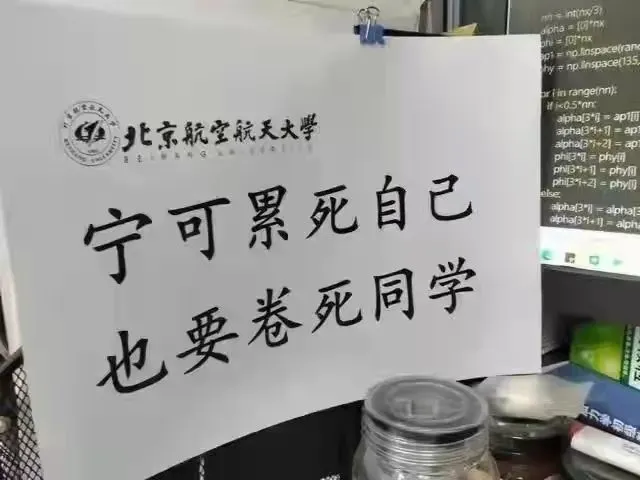 北京航空航天大學
宁可累死自己
也要卷死同学
nn = int(nx/3)
alpha = [0]*nx
phi = [0]*nx
ap1 = np.linspace(ran
phy = np.linspace(135,
for i in range(nn):
if i<0.5*nn:
alpha[3*i] = ap1[i]
alpha[3*i+1] = ap1[i]
alpha[3*i+2] = ap1[i]
phi[3*i] = phy[i]
phi[3*i+1] = phy[i]
phi[3*i+2] = phy[i]
else:
alpha[3*i] = alpha[3
alpha[3*i+1] = alpha
力学初